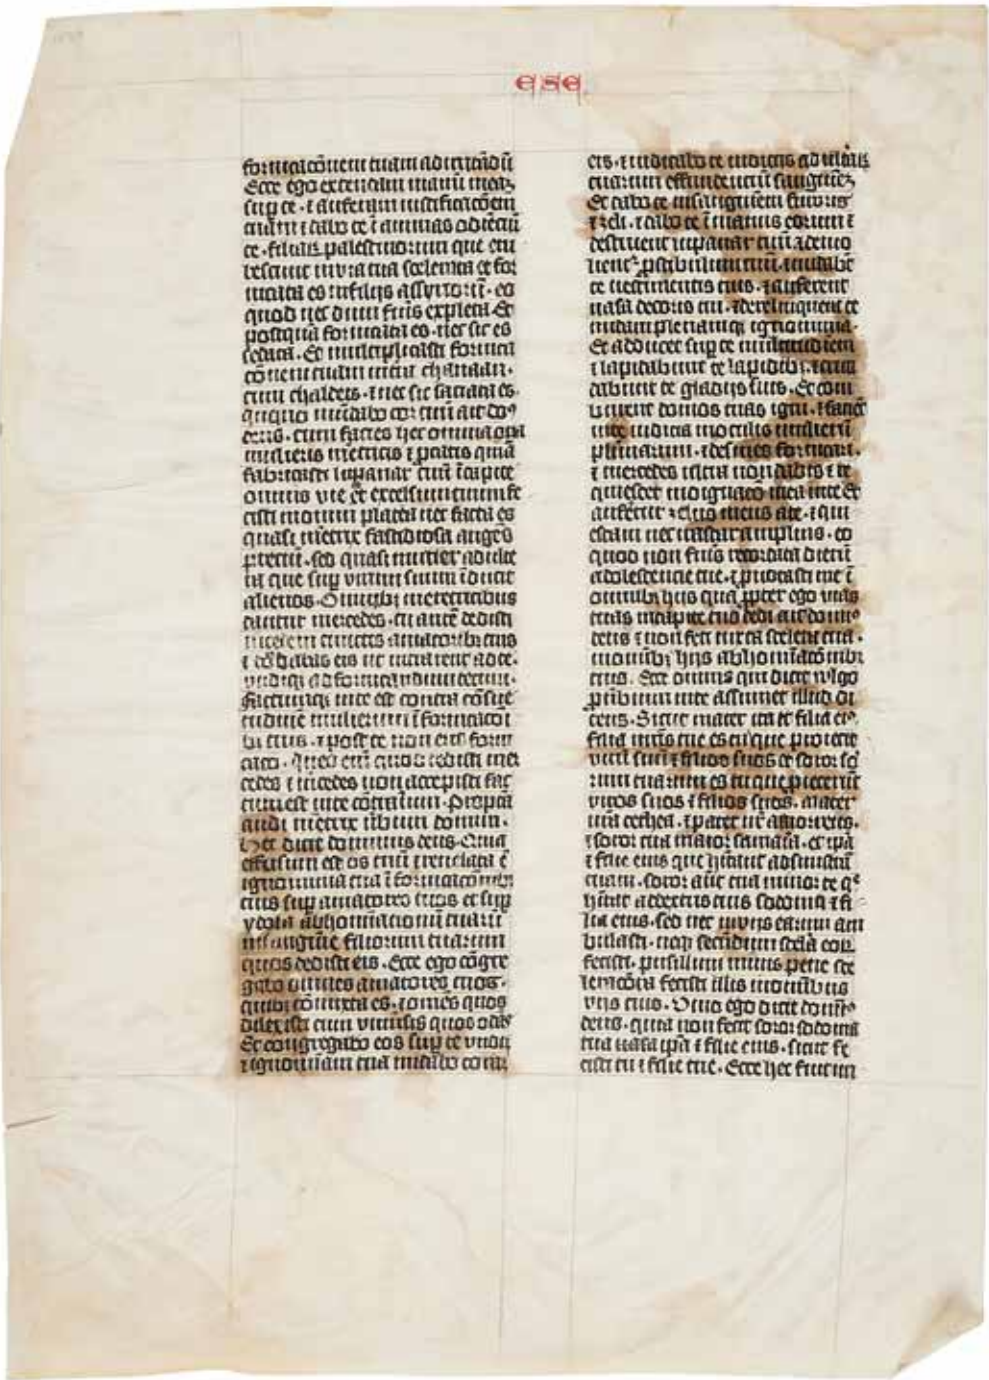 ese
fornicacōnem tuam ad irritādū
Ecce ego extendam manū meā
sup te · ⁊ auferam iustificacōem
tuam ⁊ dabo te ī animas odiētiū
te · filiaꝝ palestinorum que eru
bescunt in via tua scelerata et for
nicata es in filijs assyrioꝝ · eo
quod nec dum fueris expleta Et
postquā fornicata es · nec sic es
sedata · Et multiplicasti fornica
cōnem tuam in terra chanaan ·
cum chaldeis · ⁊ nec sic satiata es ·
in quo mūdabo cor tuū ait dn̄s
deus · cum facies hec omnia opa
mulieris meretricis ⁊ procacis quia
fabricasti lupanar tuū ī capite
omnis vie et excelsum tuum fe
cisti in omni platea nec facta es
quasi meretrix fastidiosa augēs
precium · sed quasi mulier adulte
ra que sup virum suum īducit
alienos · Omnibꝫ meretricibus
dantur mercedes · tu autē dedisti
mercedem cunctis amatoribꝫ tuis
⁊ dōa dabas eis ut intrarent ad te ·
vndiqꝫ ad fornicandum tecum ·
factumqꝫ in te est contra cōsue
tudinē mulierum ī fornicacōi
bꝫ tuis · ⁊ post te non erit forni
cacio · In eo em̄ quod dedisti mer
cedes ⁊ mercedes non accepisti fac
tum est in te cōtrarium · Propterea
audi meretrix verbum domini ·
Hec dicit dominus deus · Quia
effusum est es tuū ⁊ reuelata ē
ignominia tua ī fornicacōnibꝫ
tuis sup amatores tuos et sup
ydola abhominacionū tuarū
in sanguine filiorum tuorum
quos dedisti eis · Ecce ego cōgre
gabo omnes amatores tuos ·
quibꝫ cōmixta es · ⁊ omēs quos
dilexisti cum vniuersis quos oderas
Et congregabo eos sup te vndiqꝫ
⁊ ignominiam tuā nudabo coram
eis · ⁊ iudicabo te iudiciis adulteraꝝ
⁊ zeli · ⁊ dabo te ī manus eorum ⁊
destruent lupanar tuū ⁊ demo
te vestimentis tuis · ⁊ auferent
vasa decoris tui · ⁊ derelinquent te
nudam plenamqꝫ ignominia ·
Et adducet sup te multitudinem
⁊ lapidabunt te lapidibꝫ · ⁊ truci
dabunt te gladijs suis · Et com
burent domos tuas igni · ⁊ faciēt
in te iudicia in oculis mulierū
plurimarum · ⁊ desines fornicari ·
⁊ mercedes vltra non dabis ⁊ re
quiescet indignacō mea in te Et
auferetur zelus meus a te · ⁊ qui
escam nec irascar amplius · eo
quod non fueris recordata dierū
adolescencie tue · ⁊ prouocasti me ī
omnibꝫ hijs quapropter ego vias
tuas in capite tuo dedi ait domin̄s
deus ⁊ non feci iuxta scelera tua ·
in omnibꝫ hijs abhominacōnibꝫ
tuis · Ecce omnis qui dicit vulgo
puerbium in te assumet illud di
cens · Sicut mater ita et filia eiꝰ ·
filia matris tue es tu que proiecit
virū suū ⁊ filios suos et soror so
rorum tuarum es tu que piecerunt
viros suos ⁊ filios suos · mater
vestra cethea · ⁊ pater vester amorreus ·
⁊ soror tua maior samaria · et ipa
⁊ filie eius que habitant ad sinistrā
tuam · soror autē tua minor te que
habitat a dextris tuis sodoma ⁊ fi
lia eius · sed nec in viis earum am
bulasti · neqꝫ secundum scelera eoꝝ
fecisti · pusillum minus pene sce
leraciora fecisti illis in omnibus
viis tuis · Viuo ego dicit domin̄s
deus · quia non fecit soror sodoma
tua ipa ⁊ filie eius · sicut fe
cisti tu ⁊ filie tue · Ecce hec fuit in